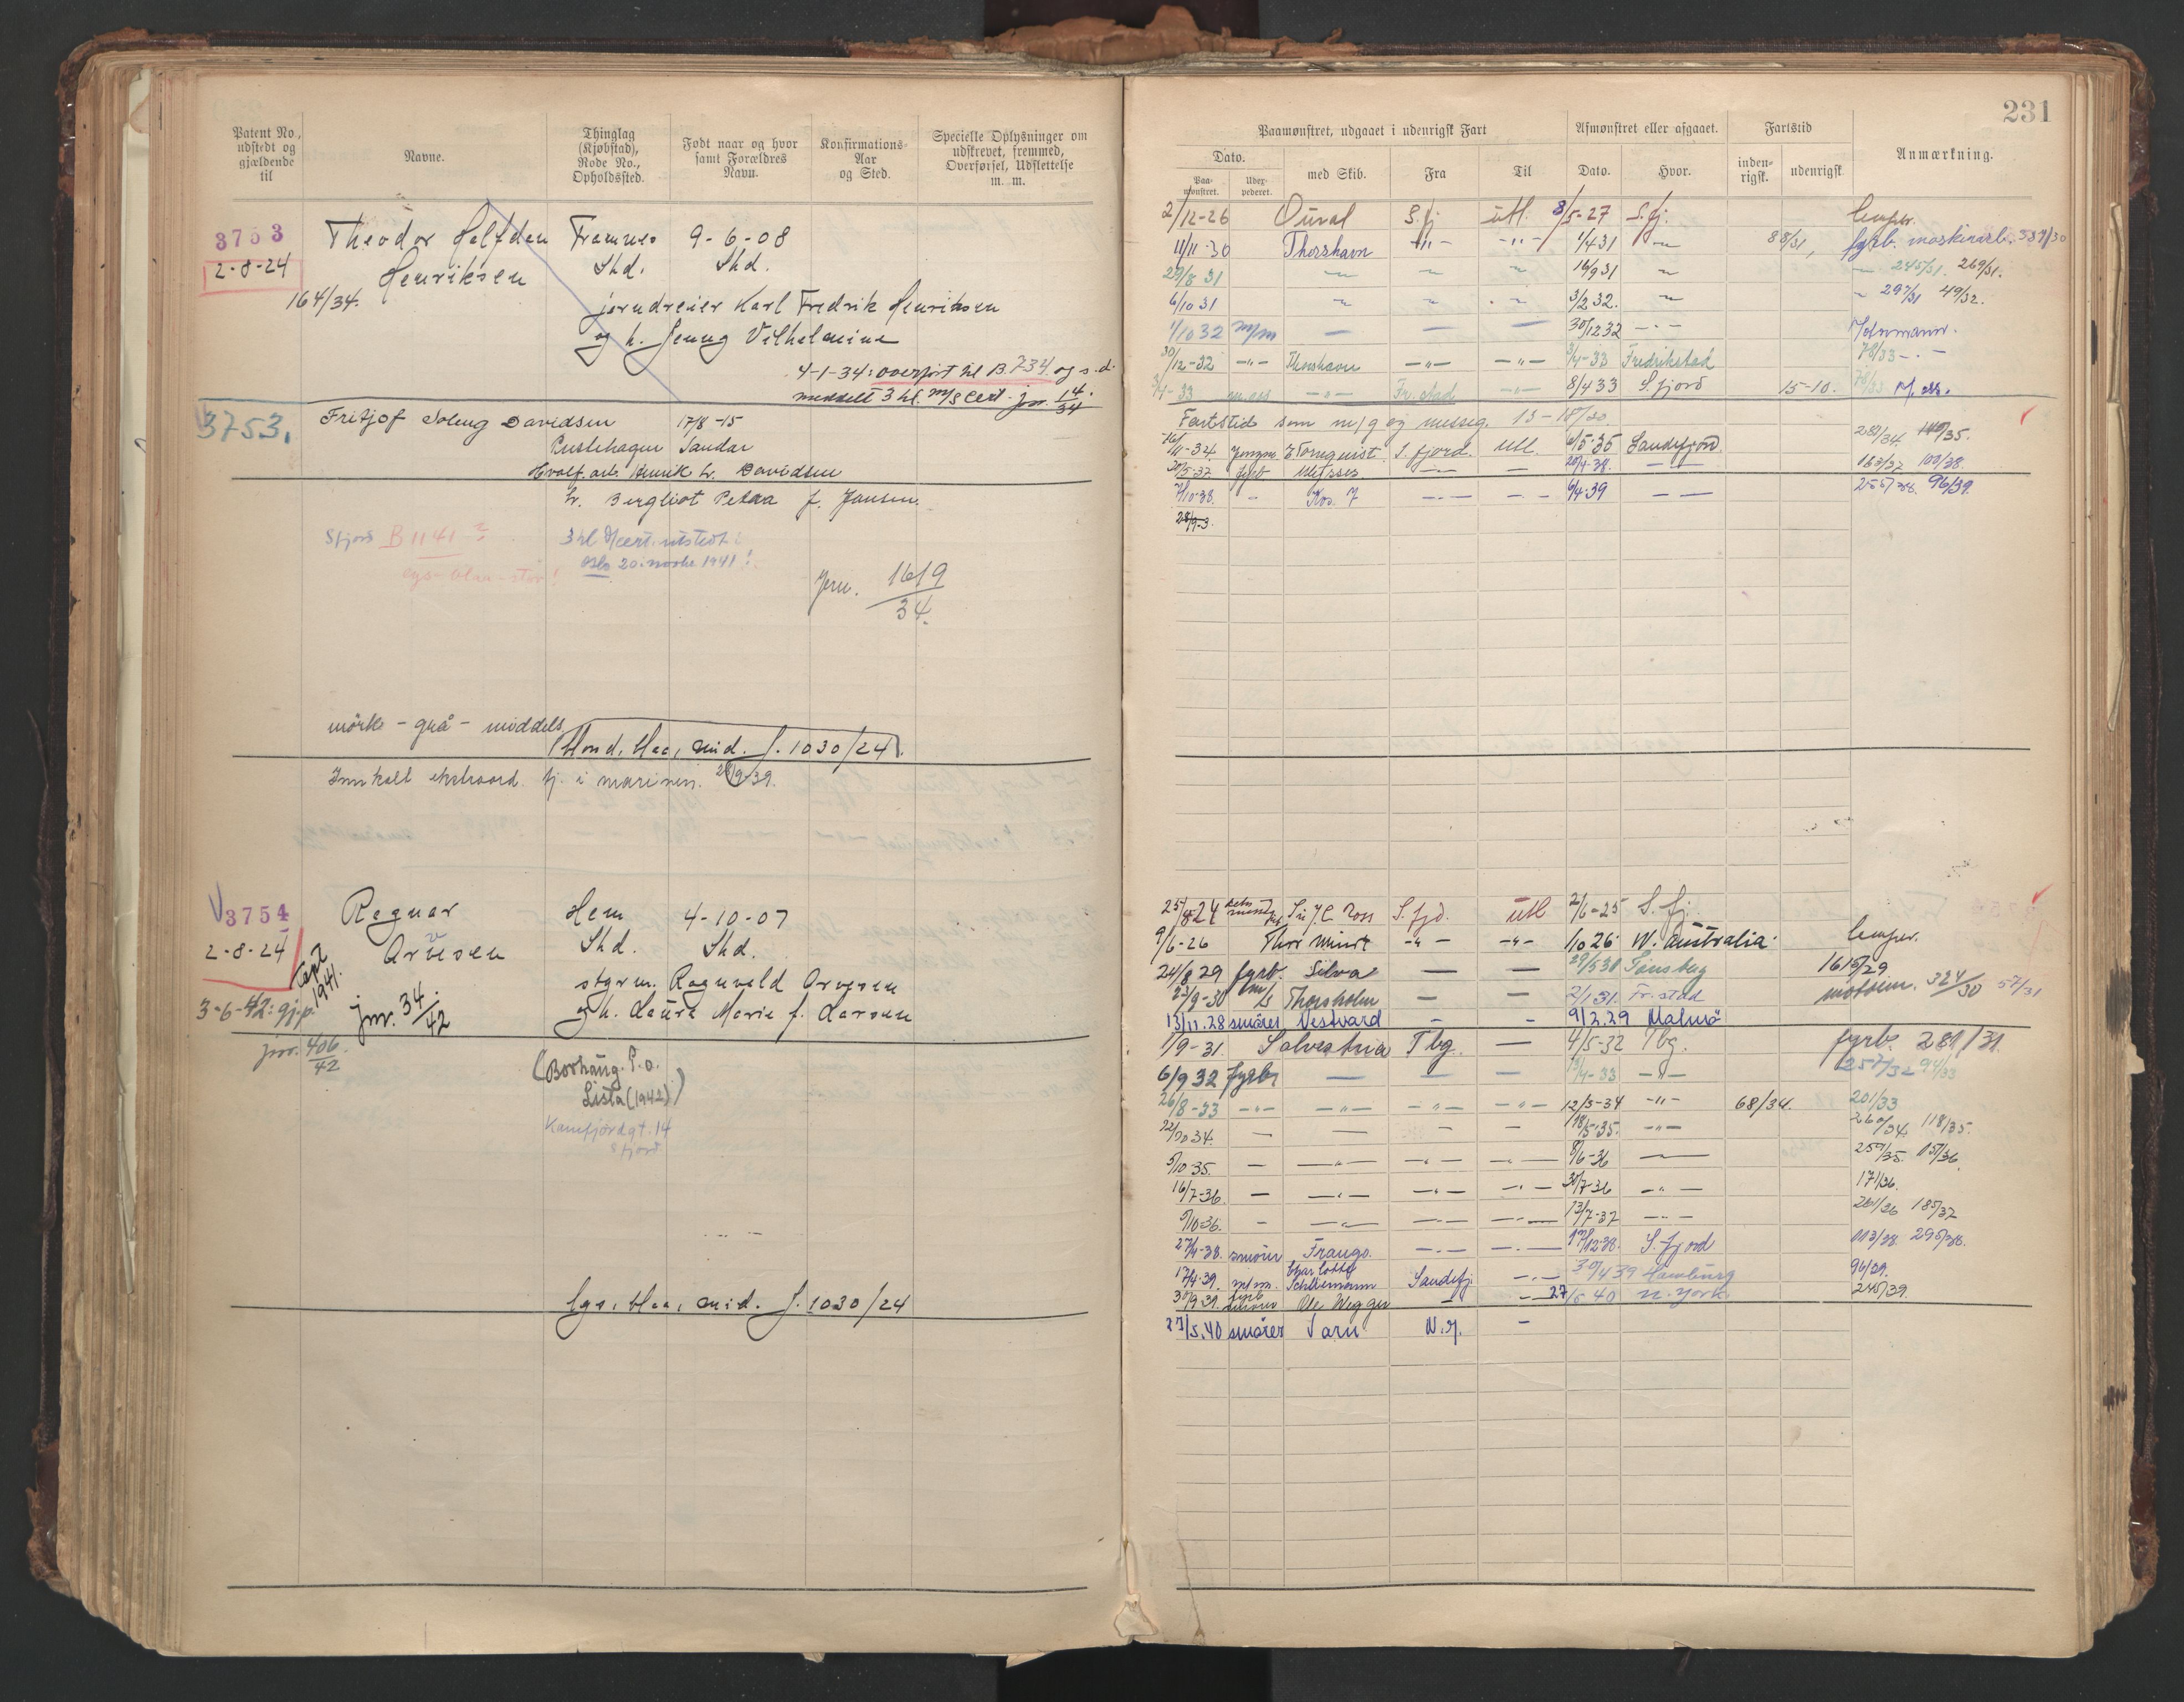 Patent No, udstedt og gjældende til
Navne.
Thinglag (Kjøbstad), Rode No., Opholdssted.
Født naar og hvor samt Forældres Navn.
Konfirmations-Aar og Sted.
Specielle Oplysninger om udskrevet, fremmed, Overførsel, Udslettelse m. m.
3753
Theodor Halfdan
Framnes
9-6-08
2-8-24
Henriksen
Shd.
Shd.
164/34.
jerndreier Karl Fredrik Henriksen
og h. Jenny Vilhelmine
4-1-34: overført til B.734. og s. d.
meddelt 3 kl. M/S Cert. jnr. 14/34
3753.
Fritjof Soleng Davidsen
17/8-15
Prestehagen Sandar
Hvalf. arb. Henrik L. Davidsen
h. Bergliot Petra f. Jansen.
Sfjord B 1141
3 kl M cert. utstedt i
Oslo 20. novbr. 1941!
Jrn. 1619/34.
mörk - grå - middels
blond, blaa, mid. J. 1030/24
Innkalt ekstraord. tj. i marinen. 28/9-39.
3754
Ragnar
Hem
4-10-07
2-8-24
Arvesen
Shd.
Shd.
1941.
styrm. Ragnvald Arvesen
3-6-42: gj.p.
jnr. 34/42
og h. Laura Marie f. Larsen
jnr. 406/42
(Borhaug. P.o.
Lista (1942))
Kamfjordgt. 14
Sfjord
lys, blaa, mid. J. 1030/24
231
Paamønstret, udgaaet i udenrigsk Fart
Afmønstret eller afgaaet.
Fartstid
Anmærkning.
Dato.
Paa-mønstret.
Udex-pederet.
med Skib.
Fra
Til
Dato.
Hvor.
inden-rigsk.
udenrigsk
2/12-26 Oural S.fj utl. 8/5-27 S.fj.
11/11-30 Thorshavn -"- -"- 1/4 31 88/31, fyrb. maskinarb. 337/30
29/8 31 16/9 31 245/31. 269/31.
6/10 31 3/2 32. 297/31 49/32.
1/10 32 m/m — — — 30/12 32 -"-
30/12-32 -"- Thorshavn -"- -"- 3/4-33 Fredrikstad 78/33 -"-
3/4-33 m. ass -"- Fr.stad -"- 8/4 33 S.fjord 15-10. 78/33 M. ass.
Fartstid som m/g og messeg. 13-18/30.
16/11-34. E Tornquist S.fjord. Utl. 6/5-35 Sandefjord 281/34 140/35.
20/5-37. fyrb Ulysses — — 20/4-38. — 163/37 100/38.
7/10-38. - Kos. 7 — — 6/4-39 — — 255/38. 96/39.
28/9-3.
25/8 24 Sir J.C. Ross S.fjd. utl 2/6-25 S.fj.
9/6-26 Thor Minor -"- -"- 1/10 26. W. Australia.
24/8 29 fyrb. Silva — — 29/5 30 Tønsberg 1615/29
23/9-30 Thorsholm — — 2/1 31. Fr.stad motorm. 324/30 57/31
13/11.28 smörer Vestvard - - 9/2.29 Malmö
1/9-31. Salvestria Tbg. — 4/5-32 Tbg. fyrb. 281/31
6/9 32 fyrb. — — — 13/4-33 -"- 257/32 94/33
26/8-33 -"- -"- -"- -"- 12/5-34 -"- 68/34. 201/33
22/10 34. — — - — 18/5-35. -"- 260/34. 118/35.
5/10 35. — -"- -"- -"- 8/6-36 — 257/35. 151/36.
16/7-36. — -"- -"- -"- 30/7-36 -"- 171/36.
5/10 36. - -"- -"- -"- 13/7-37 -"- 261/36 185/37
27/4-38. smörer Frango. -"- -"- 17/12-38. S.fjord 113/38. 295/38.
17/4-39. m/m. Charlotte Schliemann Sandefj. -"- 30/4 39 Hamburg 96/39.
30/9 39. fyrb smörer Ole Wegger - - 27/5 40 N. York 245/39.
27/5.40 smörer Tarn N.Y. -